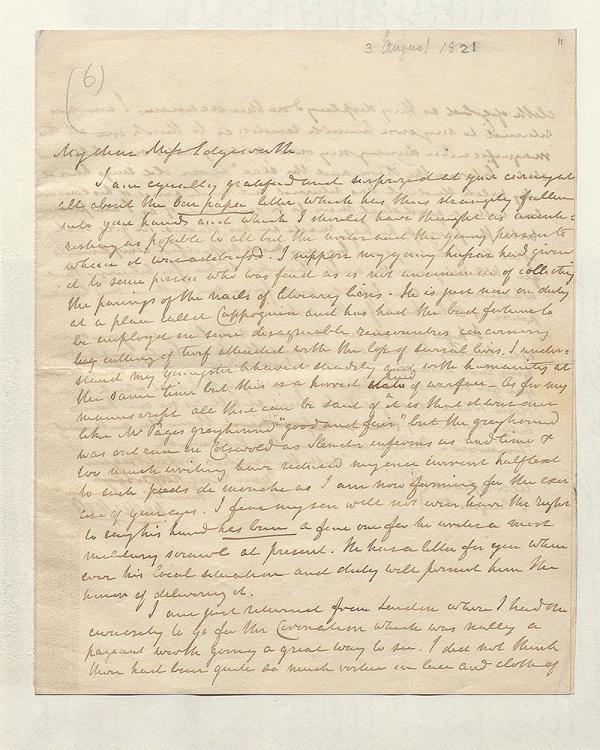 3 August 1821
11
(6)
My dear Miss Edgeworth
I am equally gratified and surprized at your
all about the Oeu paper letter which has thus strangely fallen
into your hands and which I should have thought as uninte=
resting as possible to all but the writer and the young person to
whom it was addressd. I suppose my young hussar had given
it to some person who was fond as is not uncommon of collecting
the parings of the nails of literary lions. He is just now on duty
at a place called Cappoquin and has had the bad fortune to
be employd on some disagreeable rencontres concerning
bog cutting of turf attended with the loss of several lives. I under=
stand my youngster behaved steadily and with humanity at
the same time but this is a horrid kind of warfare - As for my
manuscript all that can be said of it is that it was once
like Mr Pages greyhound "good and fair" but the greyhound
was out run on Cotswold as Slender informs us and time &
too much writing have reduced my once current half text
to such pieds de mouche as I am now forming for the exer
cise of your eyes. I fear my son will not ever have the right
to say his hand has been a fine one for he writes a most
military scrawl at present. He has a letter for you when
ever his local situation and duty will permit him the
honor of delivering it.
I am just returned from London where I had the
curiosity to go for the Coronation which was really a
pageant worth going a great way to see. I did not think
there had been quite so much virtue in lace and cloth of